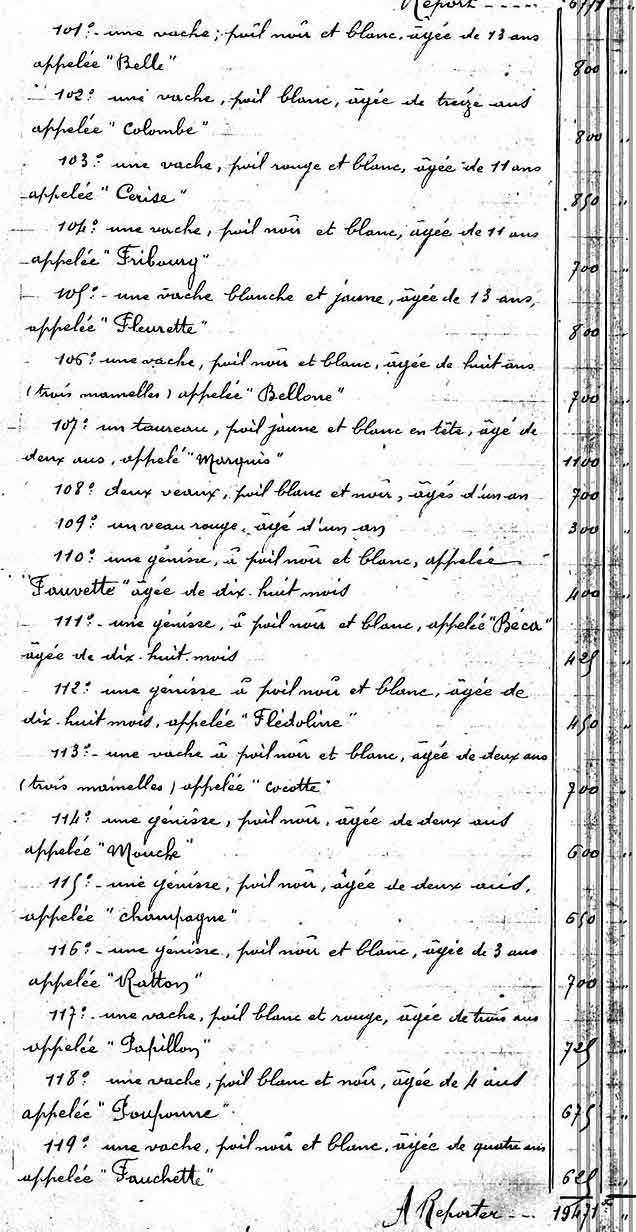 Report ---- 6771 "
101º- une vache, poil noir et blanc, âgée de 13 ans
appelée "Belle" 800 "
102º une vache, poil blanc, âgée de treize ans
appelée "Colombe" 800 "
103º une vache, poil rouge et blanc, âgée de 11 ans
appelée "Cerise" 850 "
104º une vache, poil noir et blanc, âgée de 11 ans
appelée "Fribourg" 700 "
105º- une vache blanche et jaune, âgée de 13 ans,
appelée "Fleurette" 800 "
106º une vache, poil noir et blanc, âgée de huit ans
(trois mamelles) appelée "Bellone" 700 "
107º un taureau, poil jaune et blanc en tête, âgé de
deux ans, appelé "Marquis" 1100 "
108º deux veaux, poil blanc et noir, âgés d'un an 700 "
109º un veau rouge, âgé d'un an 300 "
110º une génisse, à poil noir et blanc, appelée
"Fauvette" âgée de dix-huit mois 400 "
111º- une génisse, à poil noir et blanc, appelée "Béca"
âgée de dix-huit mois 425 "
112º une génisse à poil noir et blanc, âgée de
dix-huit mois, appelée "Flédoline" 450 "
113º- une vache à poil noir et blanc, âgée de deux ans
(trois mamelles) appelée "Cocotte" 700 "
114º une génisse, poil noir, âgée de deux ans
appelée "Mouche" 600 "
115º- une génisse, poil noir, âgée de deux ans,
appelée "Champagne" 650 "
116º- une génisse, poil noir et blanc, âgée de 3 ans
appelée "Ratton" 700 "
117º- une vache, poil blanc et rouge, âgée de trois ans
appelée "Papillon" 725 "
118º une vache, poil blanc et noir, âgée de 4 ans
appelée "Pouponne" 675 "
119º une vache, poil noir et blanc, âgée de quatre ans
appelée "Fauchette" 625 "
A Reporter --- 19471 "